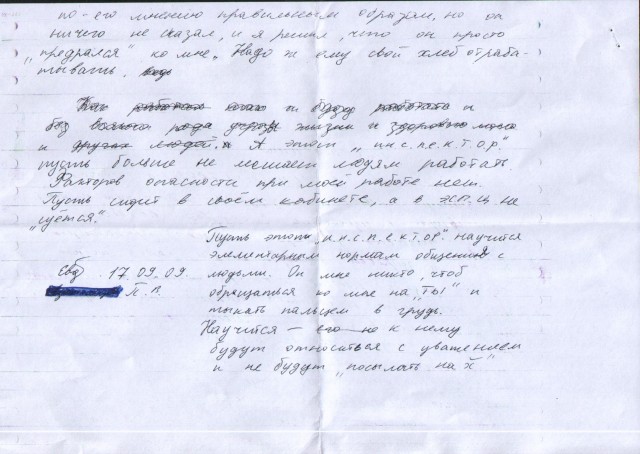 по-его мнению правильным образом, но он
ничего не сказал, и я решил, что он просто
„предрался" ко мне. Надо ж ему свой хлеб отраба-
тывать.
Как работал и буду работать и
без всякого рода угрозы жизни и здоровью
и других людей. А этот „и.н.с.п.е.к.т.о.р."
пусть больше не мешает людям работать
Факторов опасности при моей работе нет.
Пусть сидит в своём кабинете, а в ЭСПЦ не
„суётся."
Пусть этот „и.н.с.п.е.к.т.о.р." научится
элементарным нормам общения с
людьми. Он мне никто, чтоб
обращаться ко мне на „ТЫ" и
тыкать пальцем в грудь.
Научится — то к нему
будут относиться с уважением
и не будут „посылать на й"
17.09.09.
П.П.